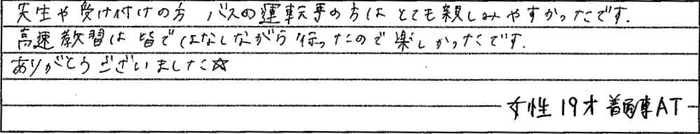 先生や受け付けの方 バスの運転手の方は とても親しみやすかったです.
高速教習は 皆ではなしながら 行ったので楽しかったです.
ありがとうございました☆
女性 19才 普通車AT